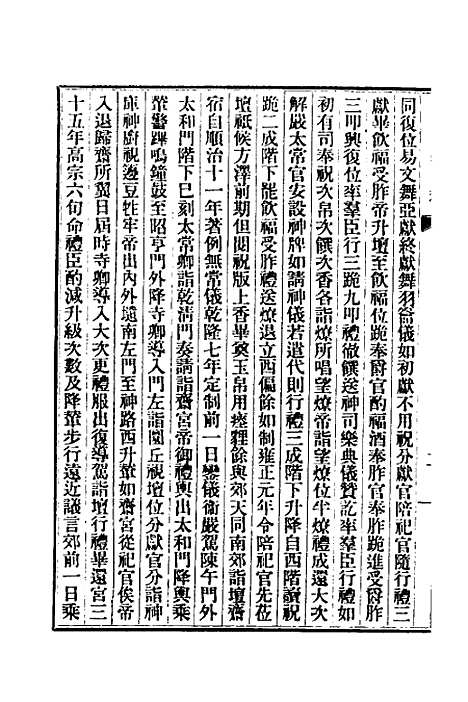 同復位易文舞亞獻終獻舞羽籥儀如初獻不用祝分獻官陪祀官隨行禮三
獻畢飲福受胙帝升壇至飲福位跪奉爵官酌福酒奉胙官奉胙跪進受爵胙
三叩興復位率羣臣行三跪九叩禮徹饌送神司樂典儀贊訖率羣臣行禮如
初有司奉祝次帛次饌次香各詣燎所唱望燎帝詣望燎位半燎禮成還大次
解嚴太常官安設神牌如請神儀若遣代則行禮三成階下升降自西階讀祝
跪二成階下罷飲福受胙禮送燎退立西偏餘如制雍正元年令陪祀官先莅
壇祗候方澤前期但閱祝版上香畢奠玉帛用瘞貍餘與郊天同南郊詣壇齋
宿自順治十一年著例無常儀乾隆七年定制前一日鑾儀衞嚴駕陳午門外
太和門階下巳刻太常卿詣乾清門奏請詣齋宮帝御禮輿出太和門降輿乘
輦警蹕鳴鐘鼓至昭亨門外降寺卿導入門左詣圜丘視壇位分獻官分詣神
庫神廚視籩豆牲牢帝出內外壝南左門至神路西升輦如齋宮從祀官俟帝
入退歸齋所翼日屆時寺卿導入大次更禮服出復導駕詣壇行禮畢還宮三
十五年高宗六旬命禮臣酌減升級次數及降輦步行遠近議言郊前一日乘